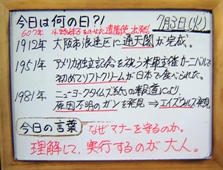 今日は何の日?!
7月3日(火)
607年 小野妹子らの遣隋使 出発!
1912年 大阪市浪速区に通天閣が完成。
1951年 アメリカ独立記念を祝う米軍主催カーニバルで
初めてソフトクリームが日本で食べられた。
1981年 ニューヨークタイムズ紙の報道により、
原因不明のガンを発見 → エイズウイルス発見
今日の言葉
なぜマナーを守るのか。
理解して、実行するのが大人。